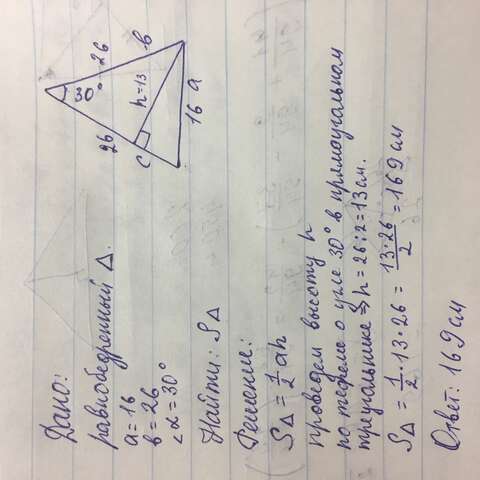 Дано:
равнобедренный Δ.
a = 16
b = 26
<α = 30°
Найти: SΔ
Решение:
SΔ = 1/2 ah
проведем высоту h
по теореме о угле 30° в прямоугольном
треугольнике ⇒ h = 26:2 = 13 см.
SΔ = 1/2 · 13 · 26 = 13·26/2 = 169 см
Ответ: 169 см
30°
26
26
b
h=13
c
16
a